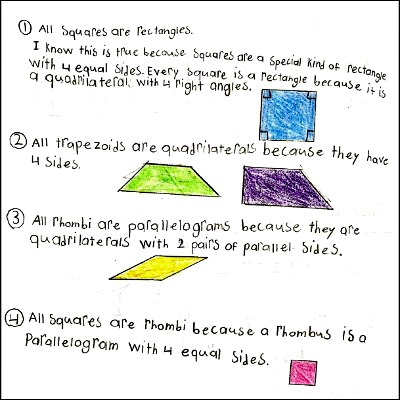 ① All Squares are rectangles.
I know this is true because squares are a special kind of rectangle
with 4 equal sides. Every square is a rectangle because it is
a quadrilateral with 4 right angles.
② All trapezoids are quadrilaterals because they have
4 sides.
③ All rhombi are parallelograms because they are
quadrilaterals with 2 pairs of parallel sides.
④ All squares are rhombi because a rhombus is a
Parallelogram with 4 equal sides.